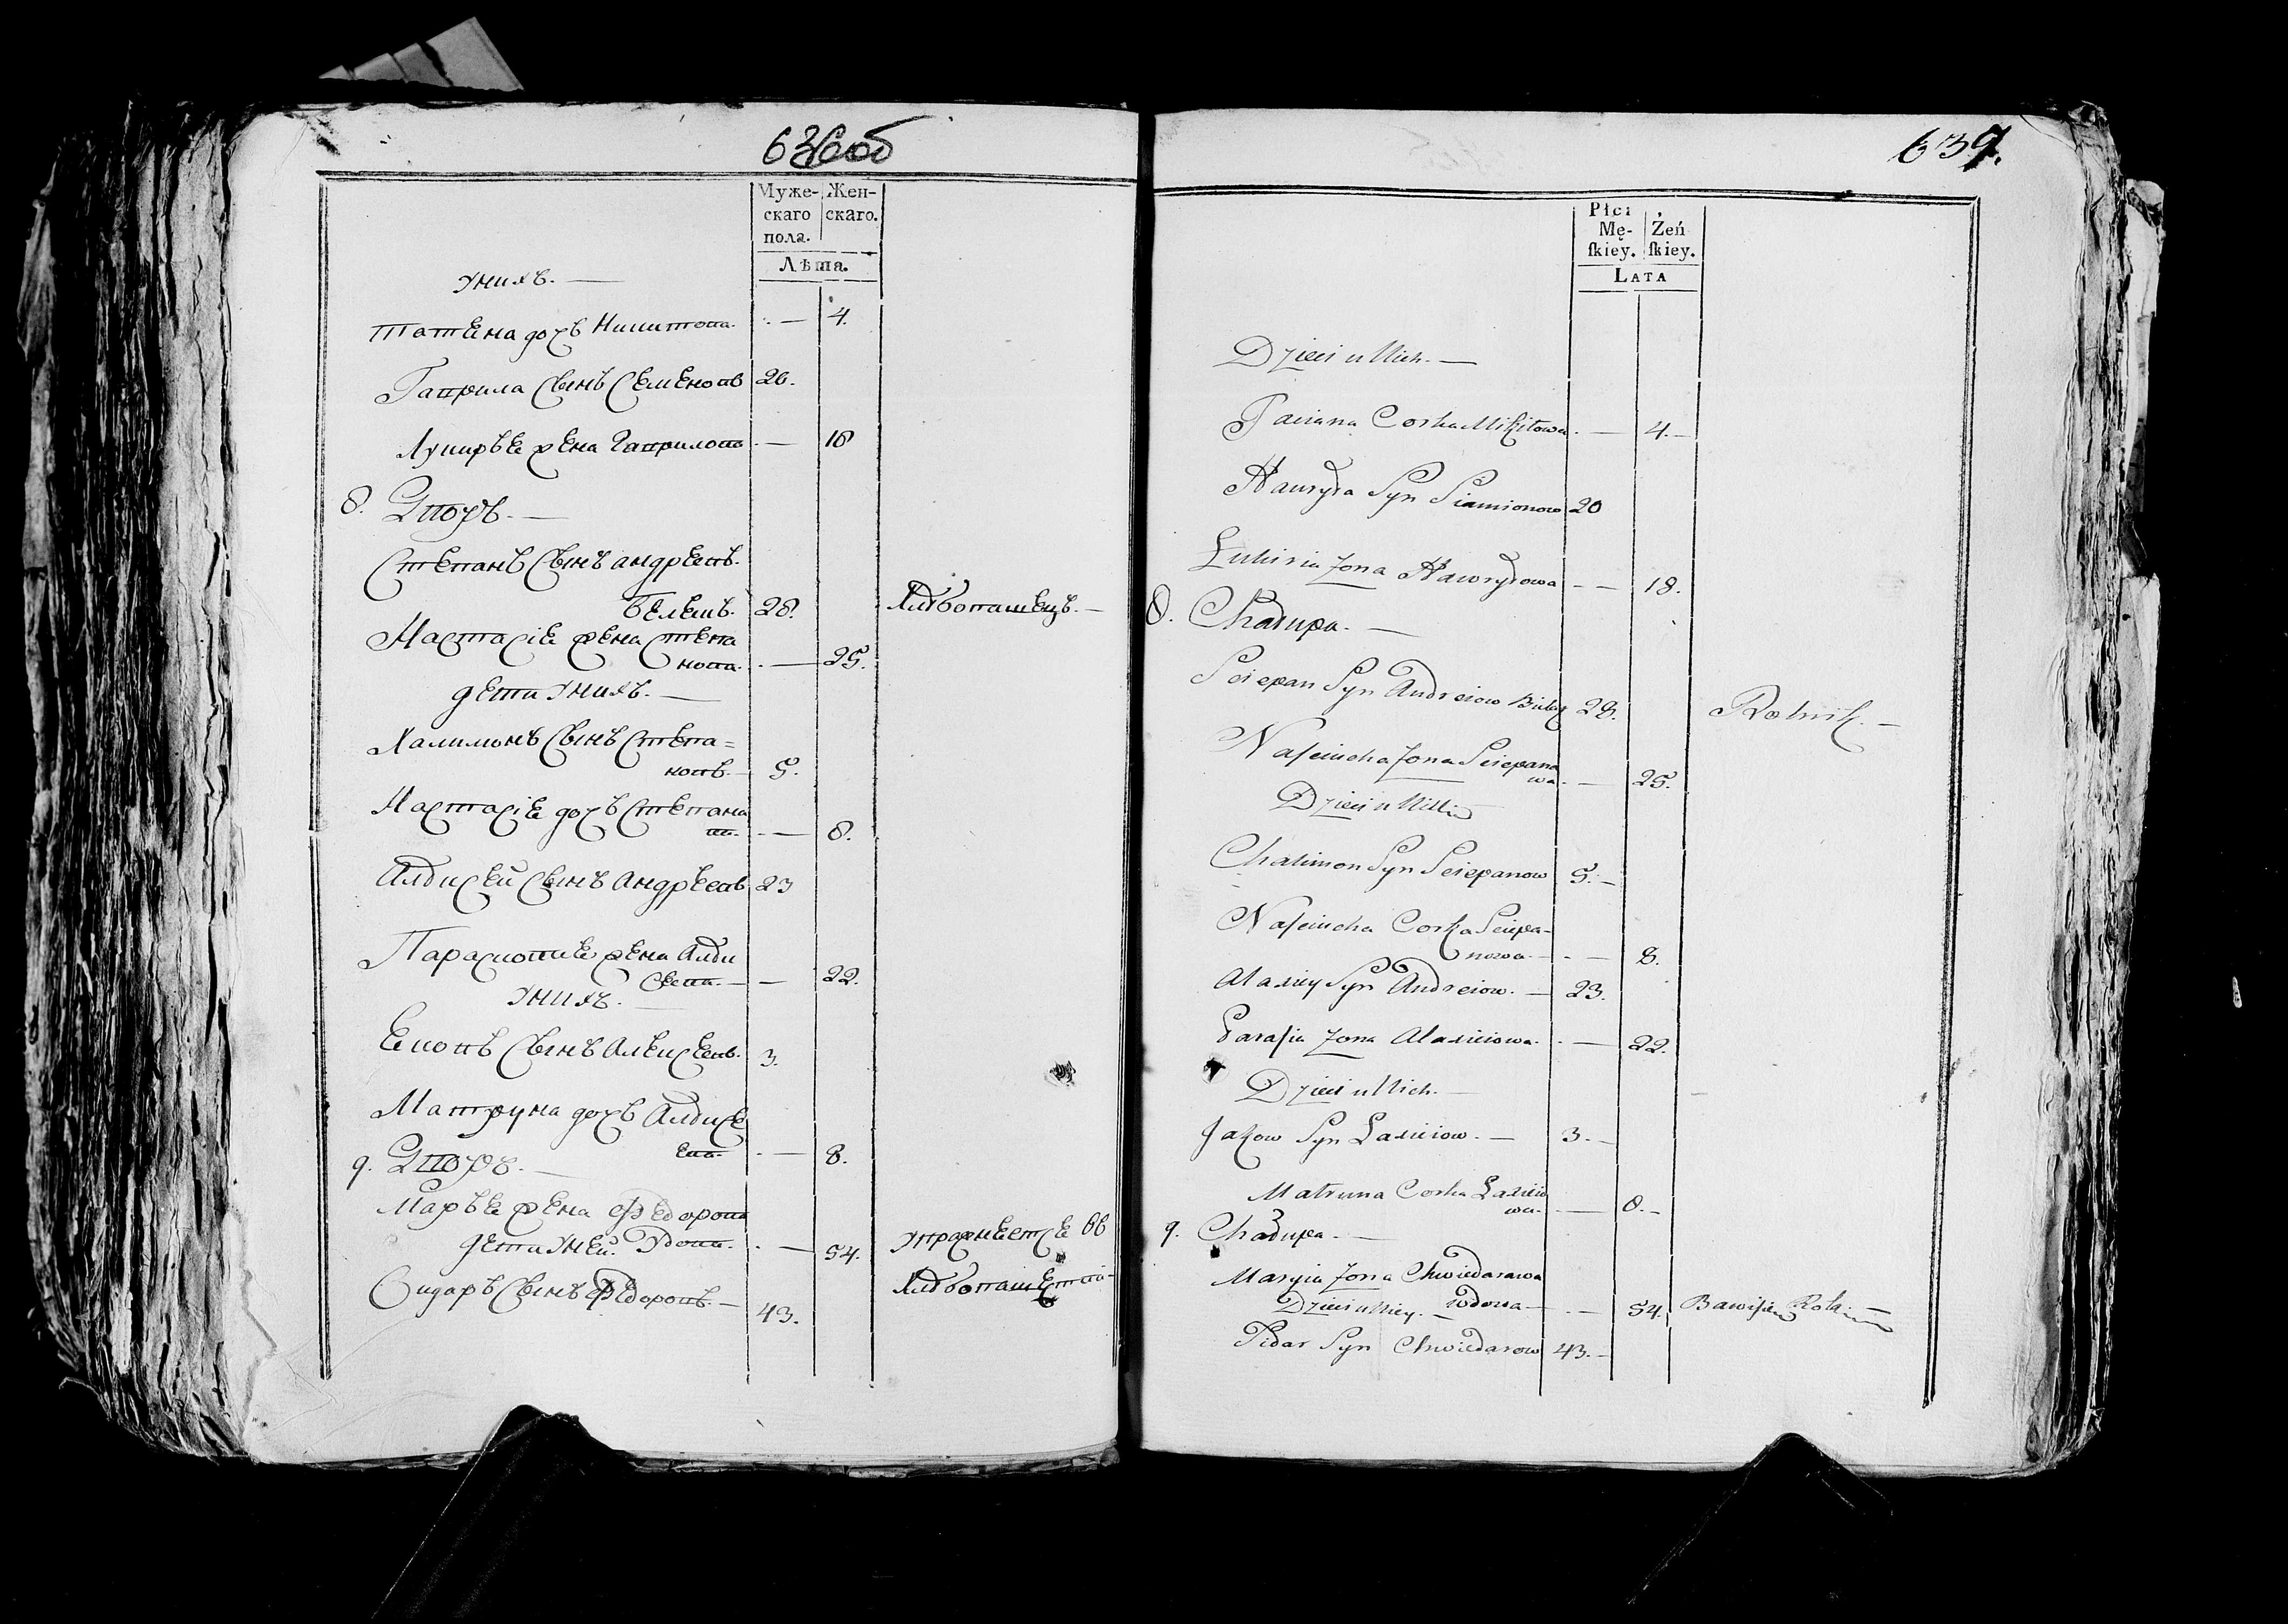 636об
Муже-
скаго
пола.
Жен-
скаго.
Лѣта.
Унихъ. —
Татьена дочь Микитова. — 4.
Гаврила сынъ Семеновъ 20.
Лукирье жена Гаврилова — 18
8. Дворъ. —
Степанъ сынъ андреевъ.
Белешъ. 28. Хлѣбопашецъ. —
Настасіе жена Степа
нова. — 25.
дети Унихъ. —
Халимонъ сынъ Степа=
новъ. — 5.
Настасіе дочь Степано
ва. — 8.
Алексей сынъ Андреевъ 23
Парасковие жена Алек
сеева. — 22.
Унихъ. —
Ековъ сынъ Алексеевъ. 3.
Матруна дочь Алексе
ева. — 8.
9. Дворъ. —
Марье жена Федорова
дети Уней. Удова. — 54. упражнеетсе въ
Сидоръ сынъ Федоровъ. — 43. Хлѣбопашестве
637.
Płci
Mę-
ſkiey.
Żeń
ſkiey.
LATA
Dzieci u Nich. —
Taciana Corka Mikitowa. — 4. —
Hawryła Syn Siamionow 20
Lukiria Zona Hawryłowa — — 18.
8. Chałupa. —
Sciepan Syn Andreiow 28. Rolnik. —
Naſciucha Zona Sciepano
wa. — 25.
Dzieci u Nich
Chalimon Syn Sciepanow 5. —
Naſciucha Corka Sciepa-
nowa — — 8.
Alaxiey Syn Andreiow. — 23.
Paraſia Zona Alaxieiowa. — 22.
Dzieci u Nich. —
Jakow Syn Laxieiow. — 3. —
Matruna Corka Laxieio
wa. — 8. —
9. Chałupa. —
Maryia Zona Chwiedarawa
Dzieci u Niey. — wdowa — — 54. Bawi się Rola —
Sidar Syn Chwiedarow 43. —